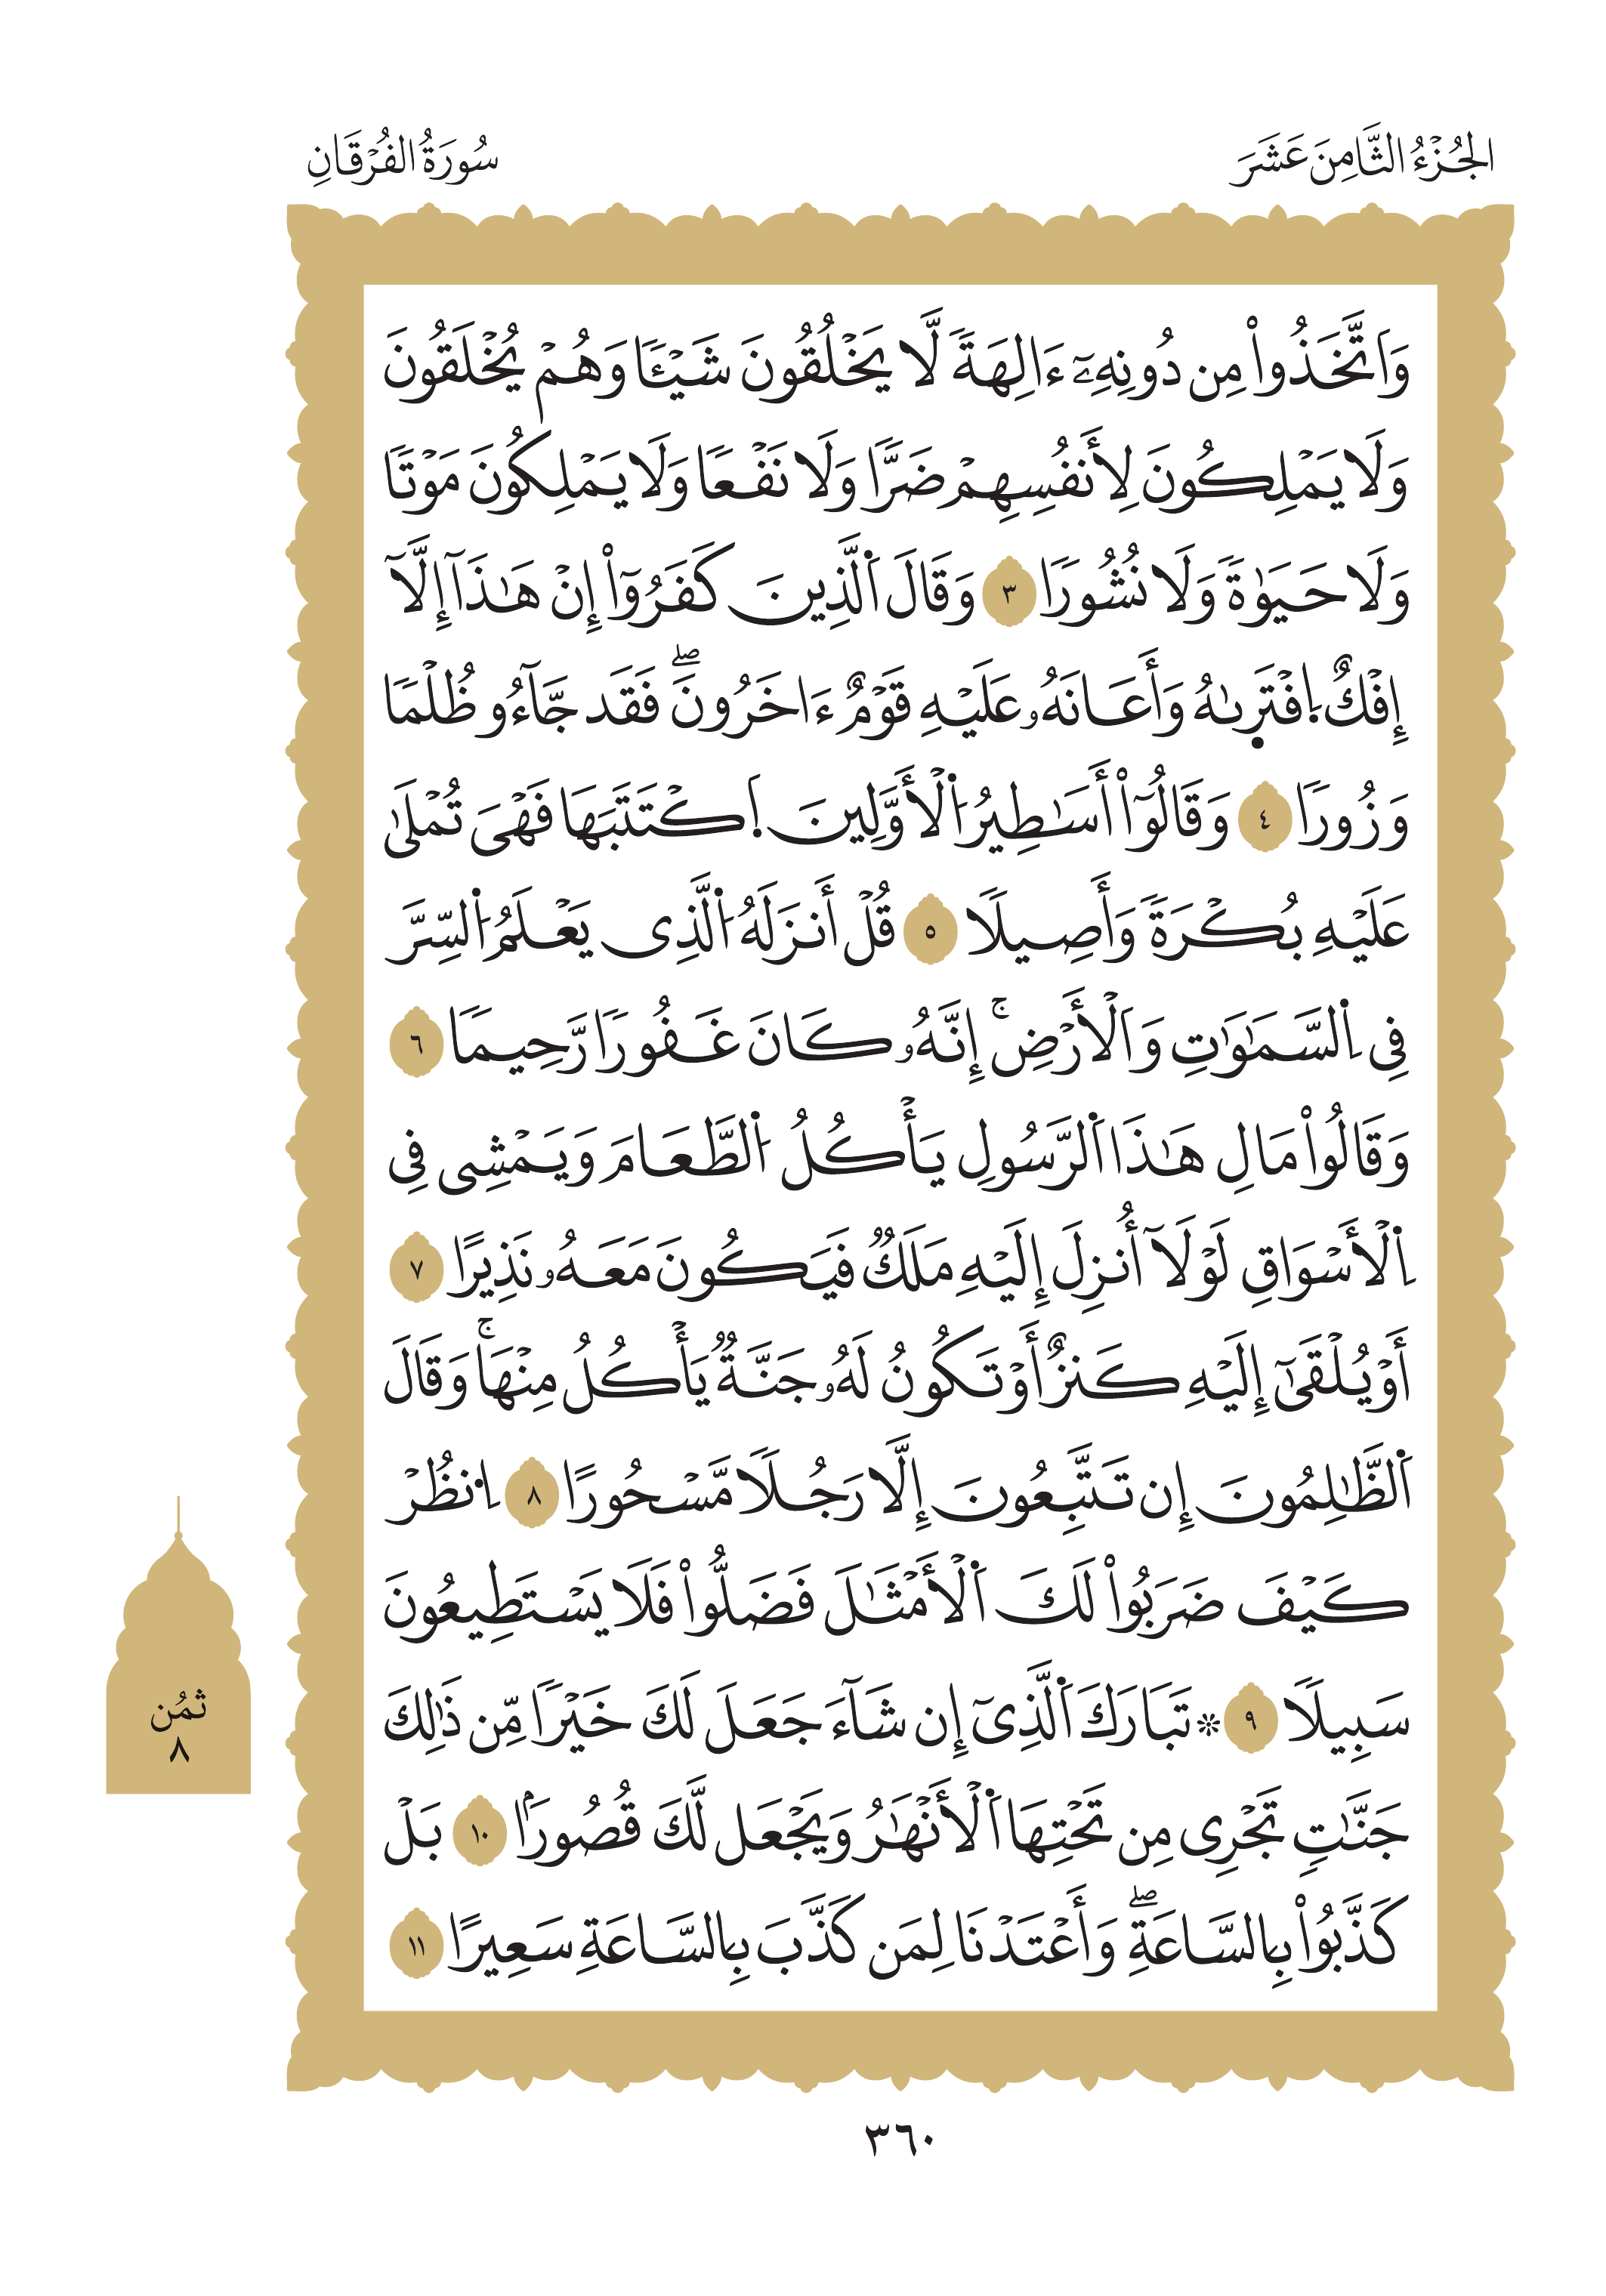 الجُزْءُ الثَّامِنَ عَشَرَ
سُورَةُ الفُرْقَانِ
وَاَتَّخَذُواْ مِن دُونِهِۦٓ ءَالِهَةٗ لَّا يَخْلُقُونَ شَيْـٔٗا وَهُمْ يُخْلَقُونَ
وَلَا يَمْلِكُونَ لِأَنفُسِهِمْ ضَرّٗا وَلَا نَفْعٗا وَلَا يَمْلِكُونَ مَوْتٗا
وَلَا حَيَوٰةٗ وَلَا نُشُورٗا ٣ وَقَالَ اَ۬لَّذِينَ كَفَرُوٓاْ إِنْ هَٰذَآ إِلَّآ
إِفْكٌ اِ۪فْتَر۪ىٰهُ وَأَعَانَهُۥ عَلَيْهِ قَوْمٌ ءَاخَرُونَۖ فَقَد جَّآءُو ظُلْمٗا
وَزُورٗا ٤ وَقَالُوٓاْ أَسَٰطِيرُ اُ۬لْأَوَّلِينَ اَ۪كْتَتَبَهَا فَهْيَ تُمْلَىٰ
عَلَيْهِ بُكْرَةٗ وَأَصِيلٗا ٥ قُلْ أَنزَلَهُ اُ۬لَّذِى يَعْلَمُ اُ۬لسِّرَّ
فِى اِ۬لسَّمَٰوَٰتِ وَالْأَرْضِۚ إِنَّهُۥ كَانَ غَفُورٗا رَّحِيمٗا ٦
وَقَالُواْ مَالِ هَٰذَا اَ۬لرَّسُولِ يَأْكُلُ اُ۬لطَّعَامَ وَيَمْشِى فِى
اِ۬لْأَسْوَاقِ لَوْلَآ أُنزِلَ إِلَيْهِ مَلَكٞ فَيَكُونَ مَعَهُۥ نَذِيرًا ٧
أَوْ يُلْقَىٰٓ إِلَيْهِ كَنزٌ أَوْ تَكُونُ لَهُۥ جَنَّةٞ يَأْكُلُ مِنْهَاۚ وَقَالَ
اَ۬لظَّٰلِمُونَ إِن تَتَّبِعُونَ إِلَّا رَجُلٗا مَّسْحُورًا ٨ اِ۟نظُرْ
كَيْفَ ضَرَبُواْ لَكَ اَ۬لْأَمْثَٰلَ فَضَلُّواْ فَلَا يَسْتَطِيعُونَ
سَبِيلٗا ٩ ۞ تَبَارَكَ اَ۬لَّذِىٓ إِن شَآءَ جَعَلَ لَكَ خَيْرٗا مِّن ذَٰلِكَ
جَنَّٰتٖ تَجْرِى مِن تَحْتِهَا اَ۬لْأَنْهَٰرُ وَيَجْعَل لَّكَ قُصُورَۢا ١٠ بَلْ
كَذَّبُواْ بِالسَّاعَةِۖ وَأَعْتَدْنَا لِمَن كَذَّبَ بِالسَّاعَةِ سَعِيرًا ١١
ثُمُن
٨
٣٦٠